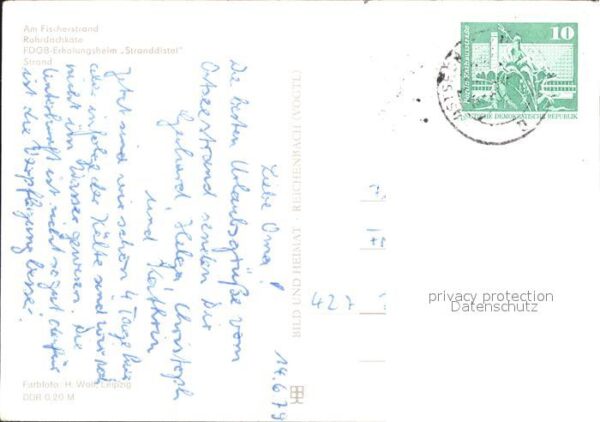 Am Fischerstrand
Rohrdachkate
FDGB-Erholungsheim „Stranddistel"
Strand
Liebe Oma!
Die besten Urlaubsgrüße vom
Ostseestrand senden Dir
Gerhard, Helga, Christoph
und Kathrin
Jetzt sind wir schon 4 Tage hier
aber infolge der Kälte sind wir noch
nicht im Wasser gewesen. Die
Unterkunft ist nicht so gut dafür
ist die Verpflegung besser.
14.6.79
Farbfoto: H. Wolf, Leipzig
DDR 0,20 M
BILD UND HEIMAT · REICHENBACH (VOGTL)
10
DEUTSCHE DEMOKRATISCHE REPUBLIK
427
privacy protection
Datenschutz